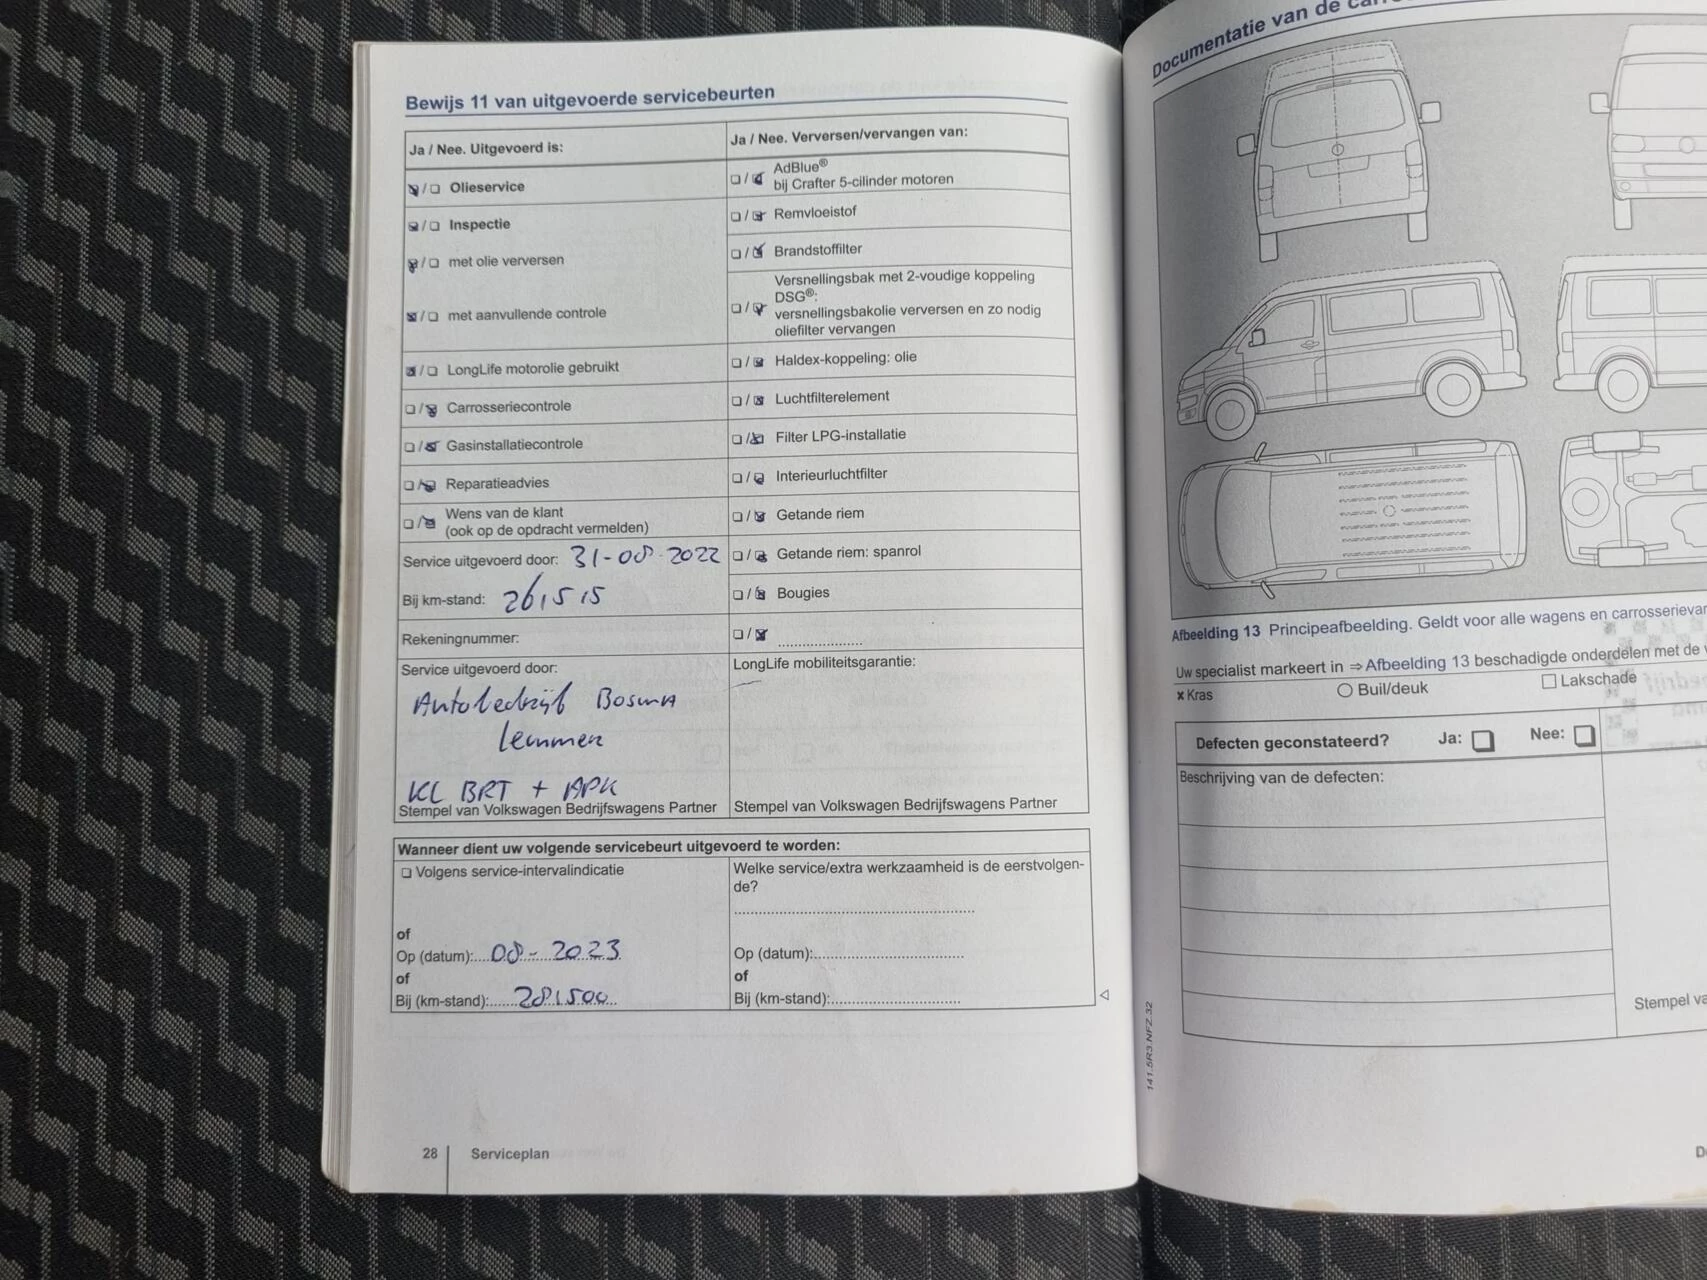 Bewijs 11 van uitgevoerde servicebeurten
Ja / Nee. Uitgevoerd is:
Olieservice
Inspectie
met olie verversen
met aanvullende controle
LongLife motorolie gebruikt
Carrosseriecontrole
Gasinstallatiecontrole
Reparatieadvies
Wens van de klant
(ook op de opdracht vermelden)
Service uitgevoerd door: 31-08-2022
Bij km-stand: 261515
Rekeningnummer:
Service uitgevoerd door:
Autobedrijf Bosma
Lemmer
KL BRT + APK
Stempel van Volkswagen Bedrijfswagens Partner
Ja / Nee. Verversen/vervangen van:
AdBlue®
bij Crafter 5-cilinder motoren
Remvloeistof
Brandstoffilter
Versnellingsbak met 2-voudige koppeling
DSG®:
versnellingsbakolie verversen en zo nodig
oliefilter vervangen
Haldex-koppeling: olie
Luchtfilterelement
Filter LPG-installatie
Interieurluchtfilter
Getande riem
Getande riem: spanrol
Bougies
LongLife mobiliteitsgarantie:
Stempel van Volkswagen Bedrijfswagens Partner
Wanneer dient uw volgende servicebeurt uitgevoerd te worden:
Volgens service-intervalindicatie
of
Op (datum): 08-2023
of
Bij (km-stand): 281500
Welke service/extra werkzaamheid is de eerstvolgen-
de?
Op (datum):
of
Bij (km-stand):
28 Serviceplan
Documentatie van de
Afbeelding 13 Principeafbeelding. Geldt voor alle wagens en
Uw specialist markeert in ⇒ Afbeelding 13 beschadigde onderdelen met de
× Kras
Buil/deuk
Lakschade
Defecten geconstateerd? Ja: Nee:
Beschrijving van de defecten:
Stempel
141.5R3.NFZ.32